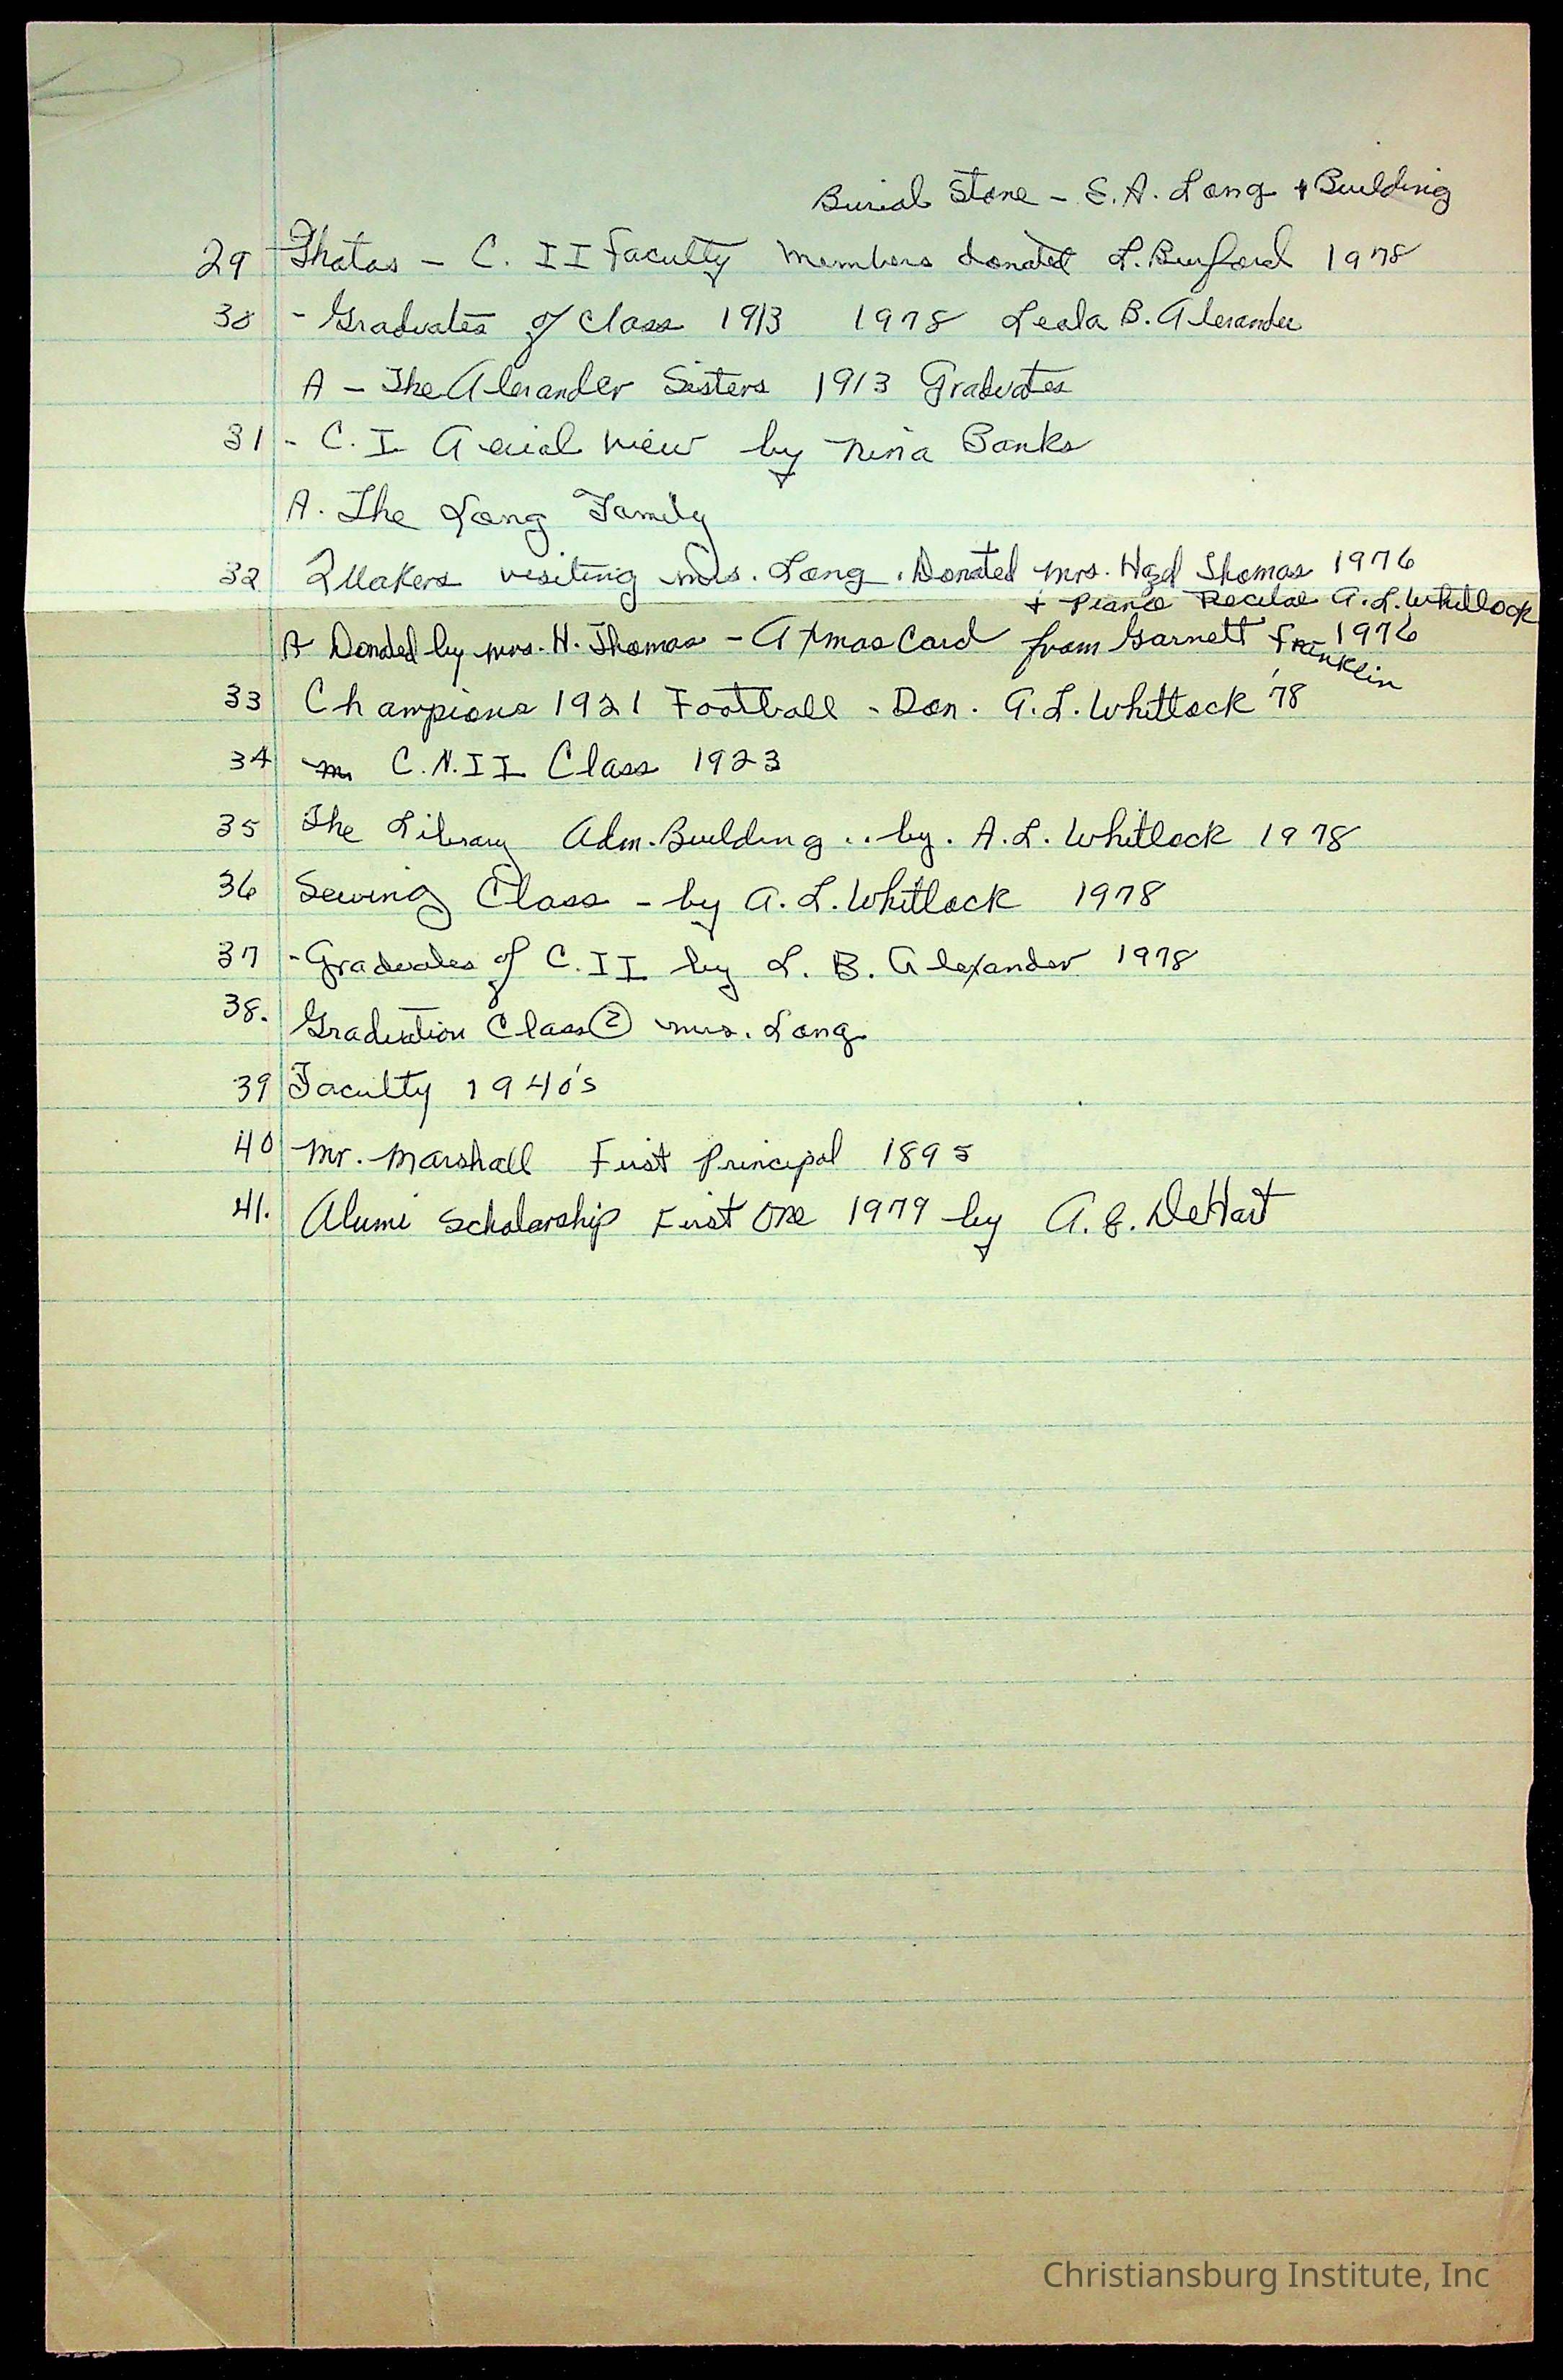 Burial Stone - E. A. Long + Building
29 Photos - C. I I Faculty Members donated L. Burford 1978
30 - Graduates of Class 1913 1978 Leola B. Alexander
A - The Alexander Sisters 1913 Graduates
31 - C. I Aerial View by Nina Banks
A. The Long Family
32 Quakers visiting Mrs. Long. Donated Mrs. Hazel Thomas 1976
+ Piano Recital A. L. Whitlock
A Donated by Mrs. H. Thomas - A Xmas Card from Garnett Franklin 1976
33 Champions 1921 Football - Don. A. L. Whitlock '78
34 C. N. I I Class 1923
35 The Library Adm. Building .. by. A. L. Whitlock 1978
36 Sewing Class - by A. L. Whitlock 1978
37 - Graduates of C. I I by L. B. Alexander 1978
38. Graduation Class (2) Mrs. Long
39 Faculty 1940's
40 Mr. Marshall First Principal 1895
41. Alumi Scholarship First One 1979 by A. E. DeHart
Christiansburg Institute, Inc